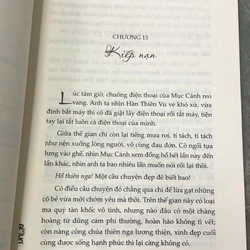 CHƯƠNG 13
Kiếp nạn
Lúc tám giờ, chuông điện thoại của Mục Cảnh reo
vang. Anh ta nhìn Hàn Thiên Vu vẻ khó xử, vừa
định bắt máy thì cô đã giật lấy điện thoại rồi tắt máy, tiện
tay lại tắt luôn cả điện thoại của mình.
Giữa thế gian chỉ còn lại tiếng mưa rơi, tí tách, tí tách
như nện xuống lòng người, vô cùng đau đớn. Cô ngồi tựa
lưng vào ghế, nhìn Mục Cảnh xem đồng hồ hết lần này đến
lần khác, nhưng anh ta bao nhiêu lần muốn nói rồi lại thôi.
Hồ thiên nga! Một câu chuyện đẹp đẽ biết bao!
Có điều câu chuyện đó chẳng qua chỉ để lừa gạt những
cô bé vừa mới chớm yêu mà thôi. Trên thế gian này có loại
ma quỷ tàn khốc vô tình, nhưng nào đâu có một chàng
hoàng tử dũng cảm phi thường, hoàn hảo không tì vết;
còn nàng công chúa thiên nga lương thiện, xinh đẹp cuối
cùng được sống hạnh phúc thì lại càng không có.